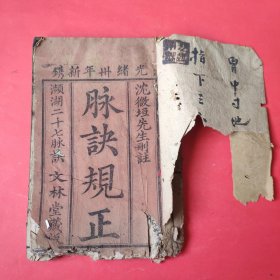 光緒卅年新鐫
沈微垣先生刪註
脉訣規正
瀕湖二十七脉訣
文林堂藏
胃中
指下三